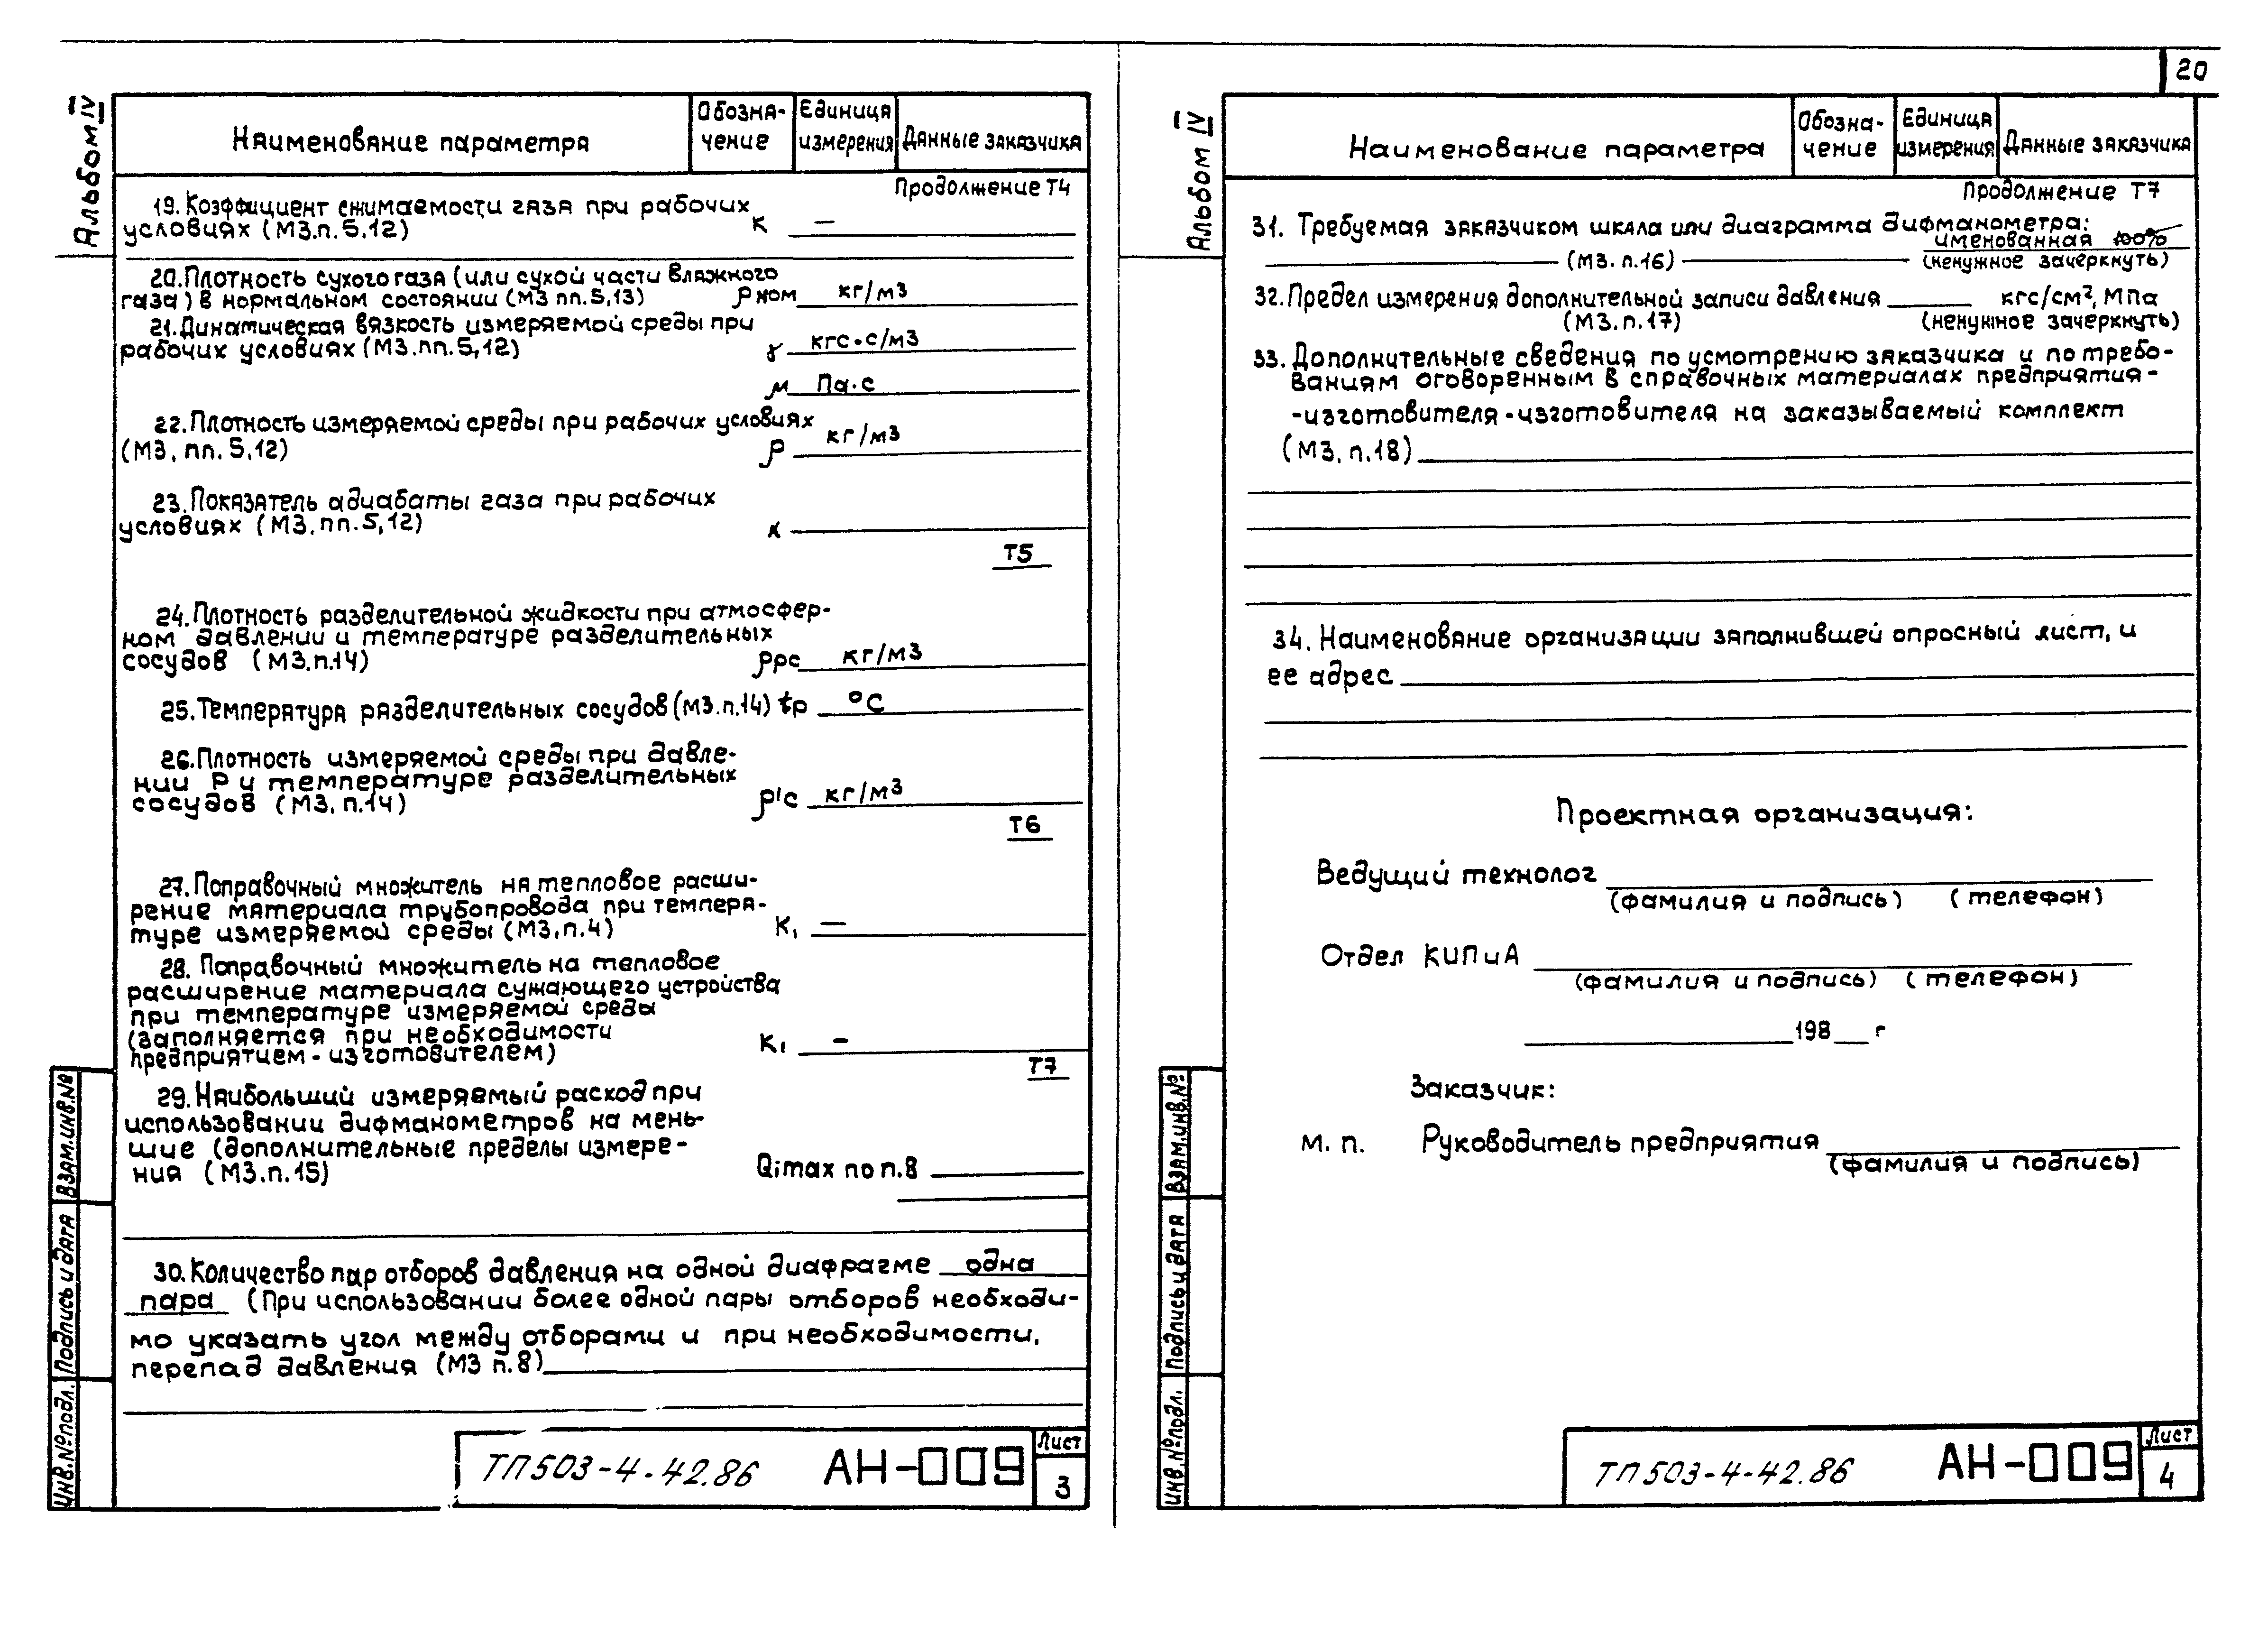 20
Альбом IV
Наименование параметра
Обозна-
чение
Единица
измерения
Данные заказчика
Продолжение Т4
19. Коэффициент сжимаемости газа при рабочих
условиях (МЗ.п.5,12) К —
20. Плотность сухого газа (или сухой части влажного
газа) в нормальном состоянии (МЗ пп.5,13) ρном кг/м3
21. Динамическая вязкость измеряемой среды при
рабочих условиях (МЗ.пп.5,12) γ кгс·с/м3
μ Па·с
22. Плотность измеряемой среды при рабочих условиях
(МЗ, пп.5,12) ρ кг/м3
23. Показатель адиабаты газа при рабочих
условиях (МЗ.пп.5,12) к
Т5
24. Плотность разделительной жидкости при атмосфер-
ном давлении и температуре разделительных
сосудов (МЗ.п.14) ρрс кг/м3
25. Температура разделительных сосудов (МЗ.п.14) tр °С
26. Плотность измеряемой среды при давле-
нии Р и температуре разделительных
сосудов (МЗ, п.14) ρ'с кг/м3
Т6
27. Поправочный множитель на тепловое расши-
рение материала трубопровода при темпера-
туре измеряемой среды (МЗ, п.4) К₁ —
28. Поправочный множитель на тепловое
расширение материала сужающего устройства
при температуре измеряемой среды
(заполняется при необходимости
предприятием-изготовителем) К₁ —
Т7
29. Наибольший измеряемый расход при
использовании дифманометров на мень-
шие (дополнительные пределы измере-
ния (МЗ.п.15) Qimax по п.8
30. Количество пар отборов давления на одной диафрагме одна
пара (При использовании более одной пары отборов необходи-
мо указать угол между отборами и при необходимости,
перепад давления (МЗ п.8)
Взам.инв.№
Подпись и дата
Инв.№подл.
ТП503-4-42.86
АН-009
Лист
3
Альбом IV
Наименование параметра
Обозна-
чение
Единица
измерения
Данные заказчика
Продолжение Т7
31. Требуемая заказчиком шкала или диаграмма дифманометра:
именованная 100%
(МЗ. п.16) (ненужное зачеркнуть)
32. Предел измерения дополнительной записи давления кгс/см², МПа
(МЗ.п.17) (ненужное зачеркнуть)
33. Дополнительные сведения по усмотрению заказчика и по требо-
ваниям оговоренным в справочных материалах предприятия-
-изготовителя-изготовителя на заказываемый комплект
(МЗ, п.18)
34. Наименование организации заполнившей опросный лист, и
ее адрес
Проектная организация:
Ведущий технолог
(фамилия и подпись) (телефон)
Отдел КИПиА
(фамилия и подпись) (телефон)
198 г
Заказчик:
м. п. Руководитель предприятия
(фамилия и подпись)
Взам.инв.№
Подпись и дата
Инв.№подл.
ТП503-4-42.86
АН-009
Лист
4